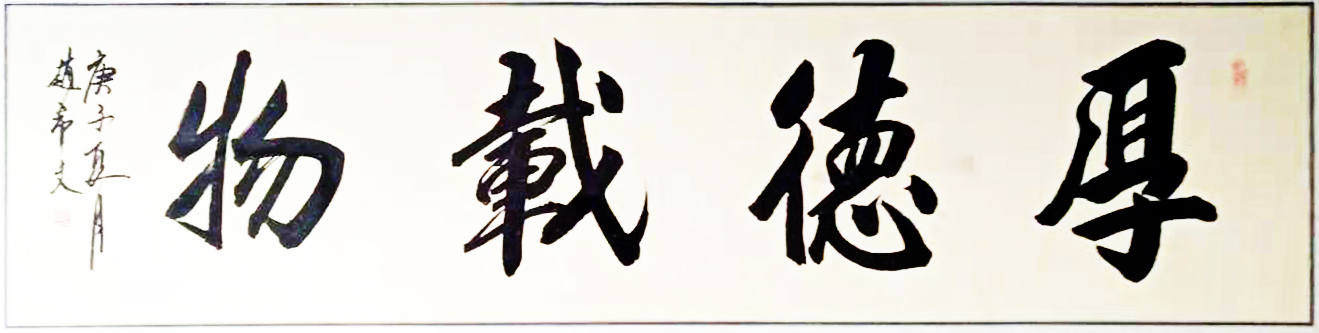 厚德載物
庚子夏月
趙希文